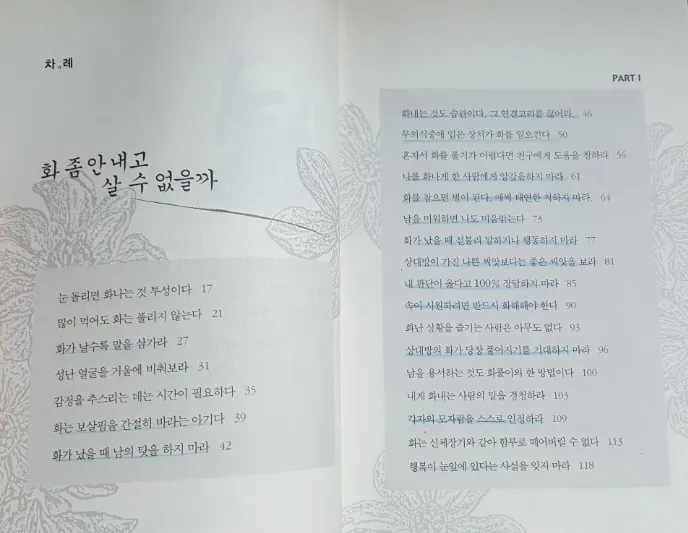 차。례
화 좀 안 내고
살 수 없을까
눈 돌리면 화나는 것 투성이다 17
많이 먹어도 화는 풀리지 않는다 21
화가 날수록 말을 삼가라 27
성난 얼굴을 거울에 비춰보라 31
감정을 추스리는 데는 시간이 필요하다 35
화는 보살핌을 간절히 바라는 아기다 39
화가 났을 때 남의 탓을 하지 마라 42
PART 1
화내는 것도 습관이다, 그 연결고리를 끊어라. 46
무의식중에 입은 상처가 화를 일으킨다 50
혼자서 화를 풀기가 어렵다면 친구에게 도움을 청하라 56
나를 화나게 한 사람에게 앙갚음하지 마라 61
화를 참으면 병이 된다, 애써 태연한 척하지 마라. 64
남을 미워하면 나도 미움받는다 73
화가 났을 때 섣불리 말하거나 행동하지 마라 77
상대방의 가진 나쁜 씨앗보다는 좋은 씨앗을 보라 81
내 판단이 옳다고 100% 장담하지 마라 85
속이 시원하려면 반드시 화해해야 한다 90
화난 상황을 즐기는 사람은 아무도 없다 93
상대방의 화가 당장 풀어지기를 기대하지 마라 96
남을 용서하는 것도 화풀이의 한 방법이다 100
내게 화내는 사람의 말을 경청하라 103
각자의 모자람을 스스로 인정하라 109
화는 신체장기와 같아 함부로 떼어버릴 수 없다 113
행복이 눈앞에 있다는 사실을 잊지 마라 118